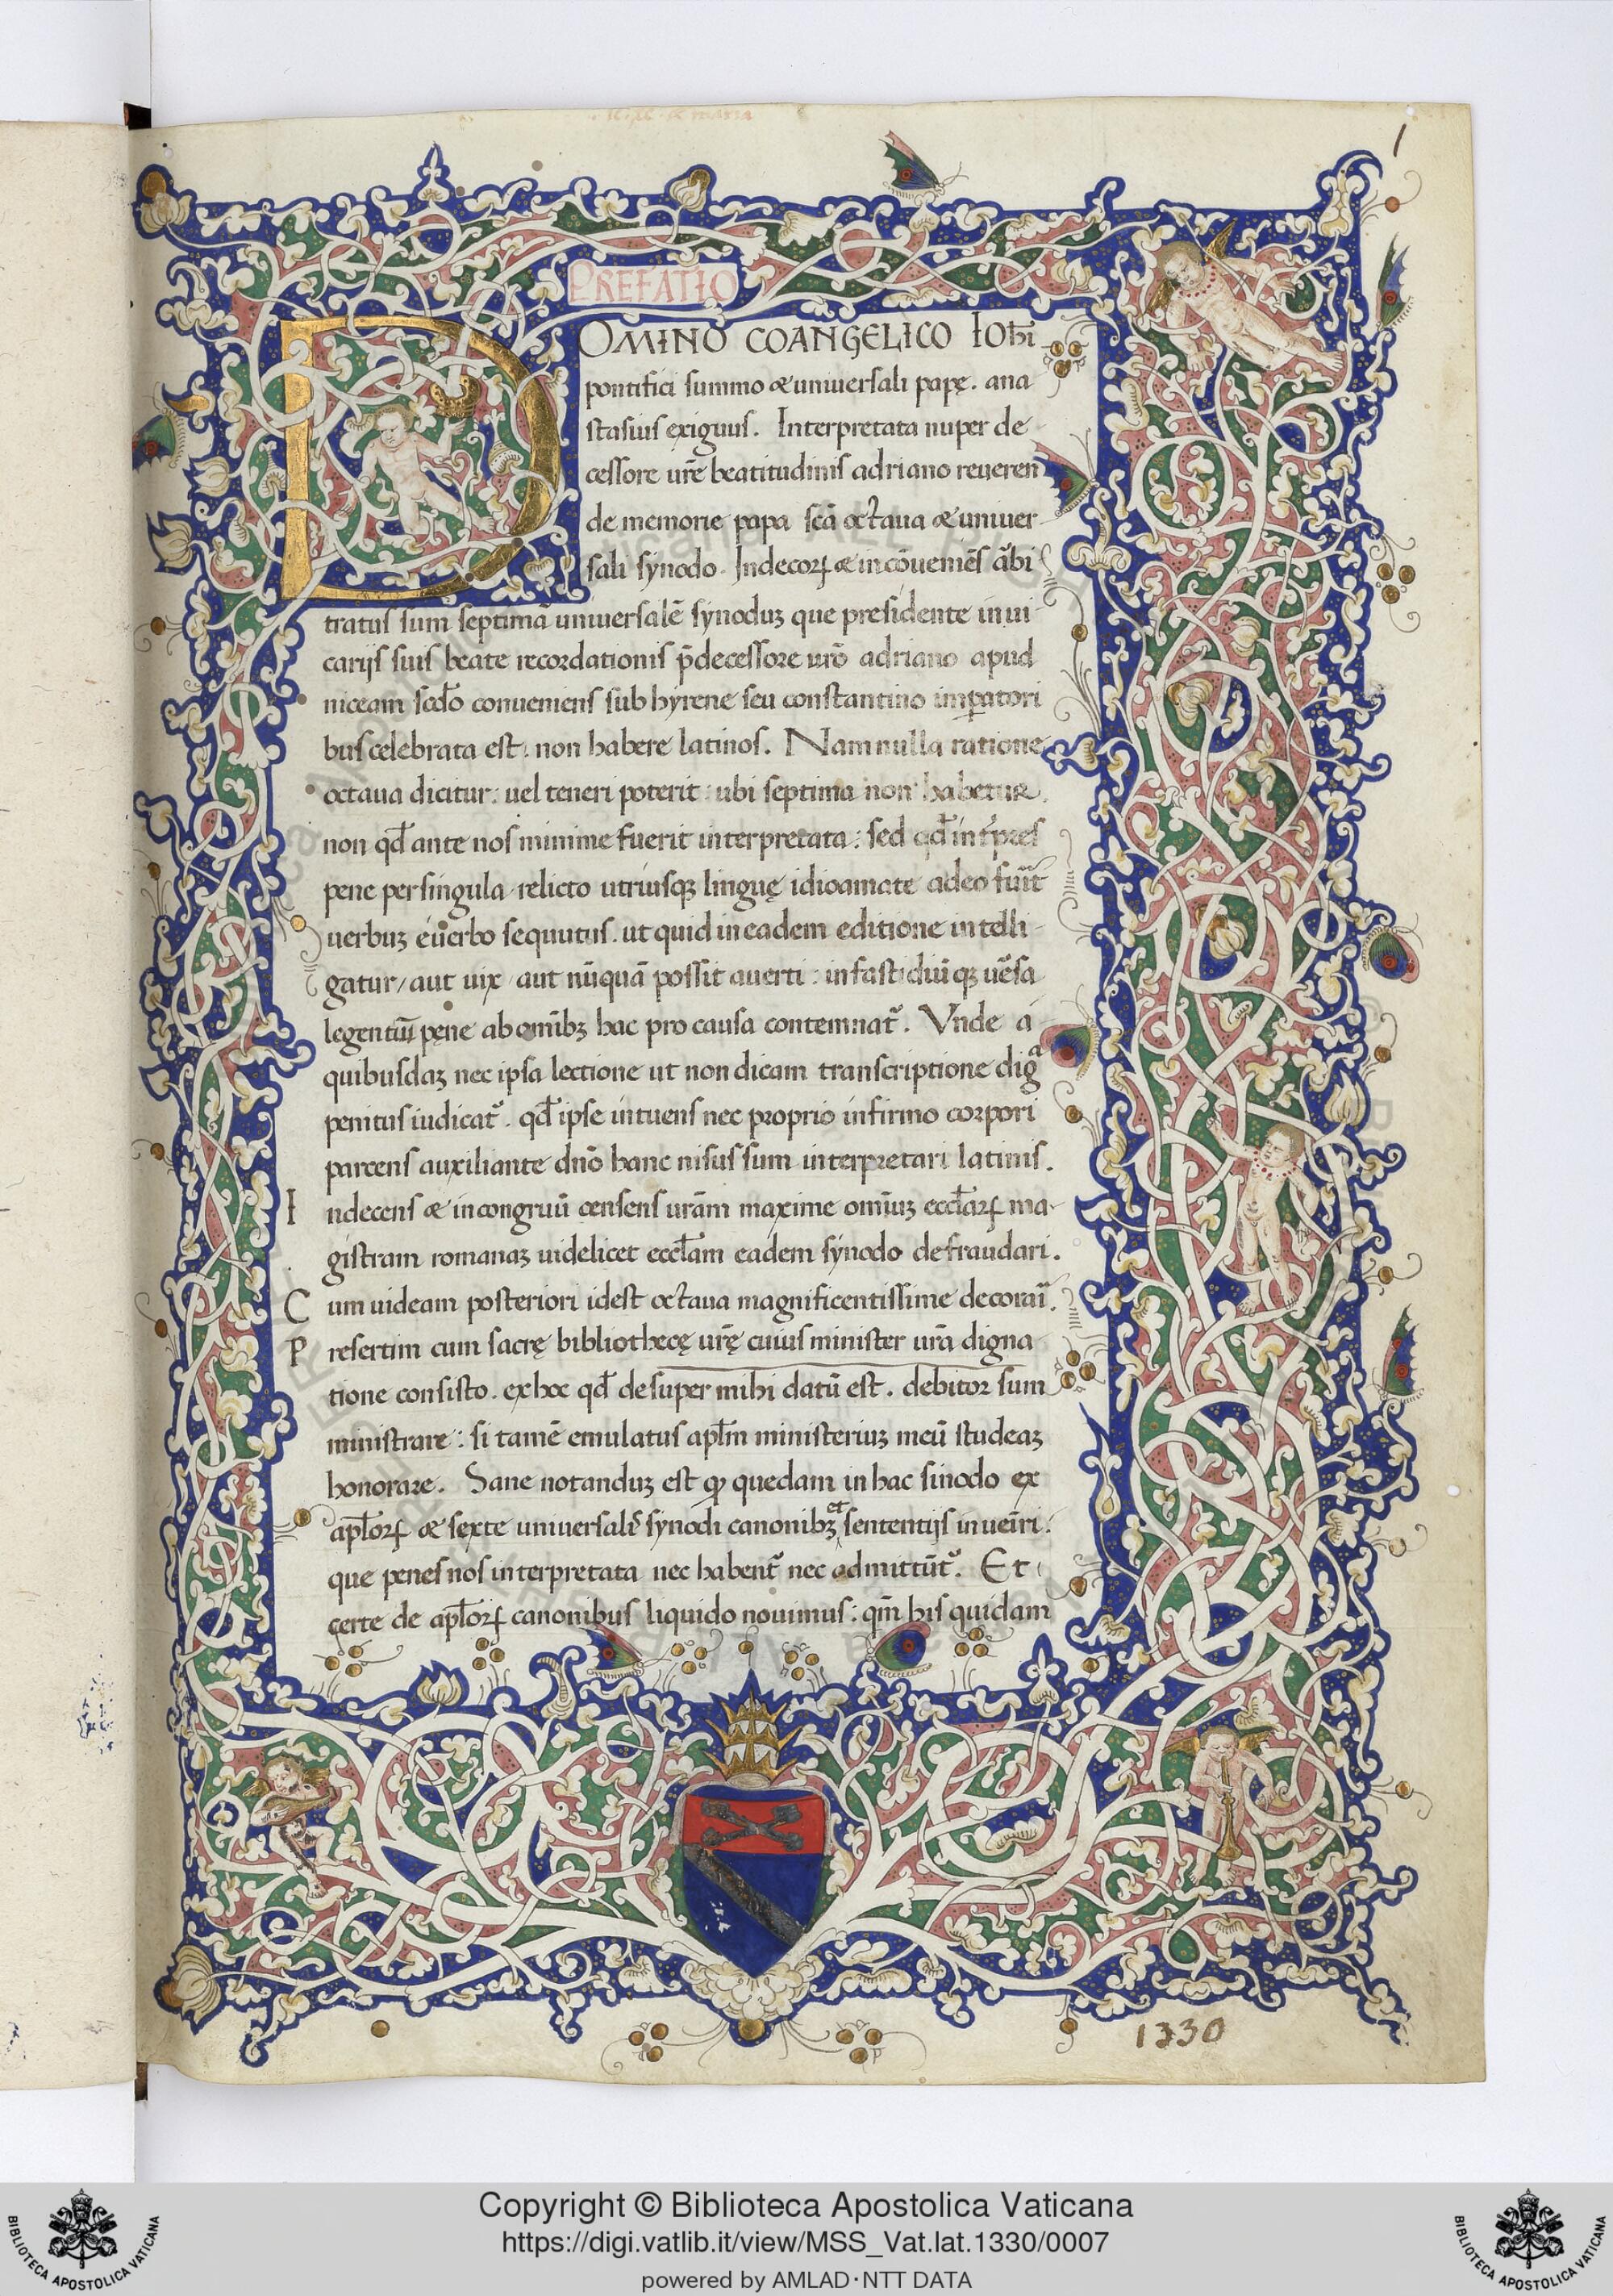 1
PREFATIO
DOMINO COANGELICO IOħi
pontifici summo & uniuersali papę. ana
stasius exiguus. Interpretata nuper de
cessore ur̃e beatitudinis adriano reueren
de memorie papa scã octaua & uniuer
sali synodo. Indecorꝝ & incõueniẽs ãbi
tratus sum septimã uniuersalẽ synoduꝫ que presidente in ui
carijs suis beate recordationis p̃decessore ur̃o adriano apud
niceam sc̃do conueniens sub hyrene seu constantino imꝑatori
bus celebrata est: non habere latinos. Nam nulla ratione
octaua dicitur: uel teneri poterit: ubi septima non habetur.
non qđ ante nos minime fuerit interpretata: sed qđ int̃pres
pene per singula relicto utriusqꝫ linguę idioamate adeo fuĩt
uerbuꝫ é uerbo sequutus. ut quid in eadem editione intelli
gatur/ aut uix aut nũquã possit auerti: in fastidiũ qꝫ uẽsa
legentiũ pęne ab omĩbꝫ hac pro causa contemnat᷑. Vnde á
quibusdaꝫ nec ipsa lectione ut non dicam transcriptione digᵃ
penitus iudicat᷑. qđ ipse intuens nec proprio infirmo corpori
parcens auxiliante dño hanc nisus sum interpretari latinis.
Indecens & incongruũ censens urãm maxime omĩuꝫ eccl̃arꝝ ma
gistram romanaꝫ uidelicet eccl̃am eadem synodo defraudari.
Cum uideam posteriori idest octaua magnificentissime decorar̃i.
Presertim cum sacrę bibliothecę ur̃ę cuius minister ur̃a digna
tione consisto. ex hoc qđ desuper mihi datũ est. debitor sum
ministrare: si tamẽ emulatus apl̃m ministeriuꝫ meũ studeaꝫ
honorare. Sane notanduꝫ est ꝙ quedam in hac sinodo ex
apl̃orꝝ & sexte uniuersal᷑ synodi canonibꝫ et sententijs inueĩri:
que penes nos interpretata nec habent᷑ nec admittũt᷑. Et
certe de apl̃orꝝ canonibus liquido nouimus: qm̃ his quidam
1330
Copyright © Biblioteca Apostolica Vaticana
https://digi.vatlib.it/view/MSS_Vat.lat.1330/0007
powered by AMLAD·NTT DATA
BIBLIOTECA APOSTOLICA VATICANA
BIBLIOTECA APOSTOLICA VATICANA